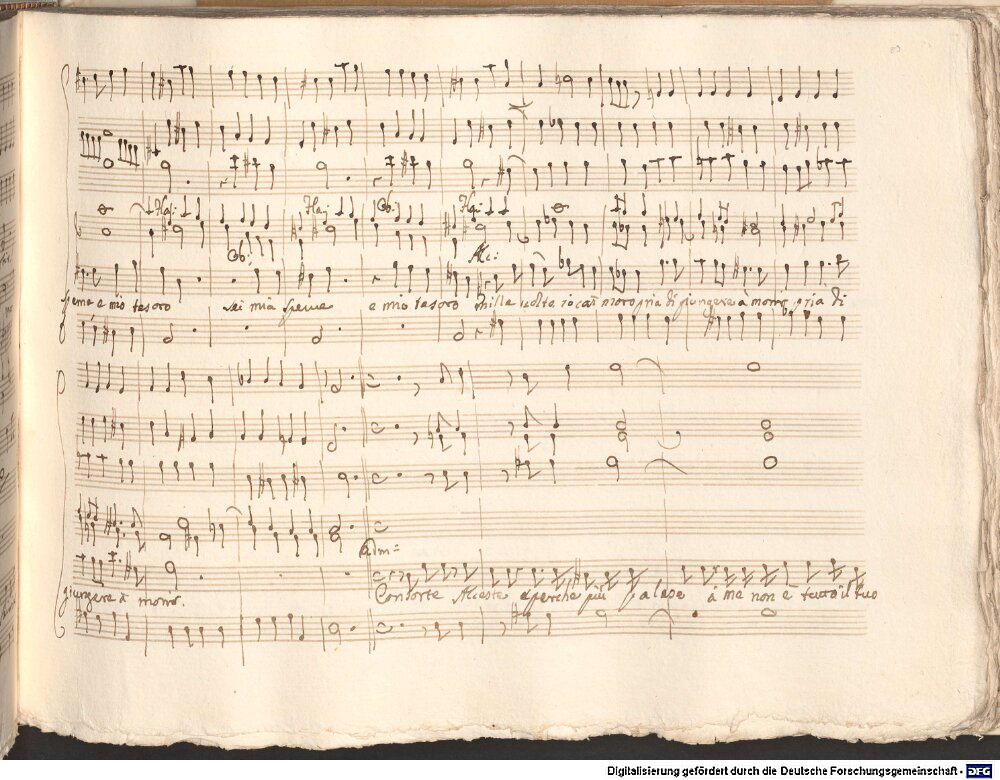 Ob:
Ob:
Alc:
speme e mio tesoro sei mia speme e mio tesoro mille volte io cari moro pria di giungere à morir pria di
Adm:
giungere à morir. Consorte Alceste e perche più palese à me non è tutto il tuo
Digitalisierung gefördert durch die Deutsche Forschungsgemeinschaft - DFG